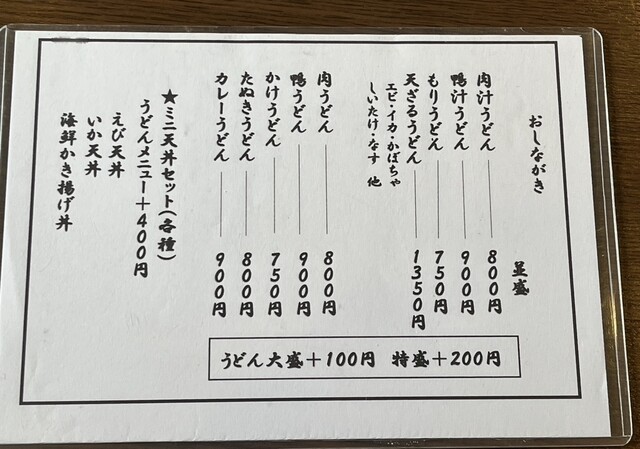 おしながき
並盛
肉汁うどん 800円
鴨汁うどん 900円
もりうどん 750円
天ざるうどん 1350円
エビ・イカ・かぼちゃ
しいたけ・なす 他
肉うどん 800円
鴨うどん 900円
かけうどん 750円
たぬきうどん 800円
カレーうどん 900円
★ミニ天丼セット(各種)
うどんメニュー+400円
えび天丼
いか天丼
海鮮かき揚げ丼
うどん大盛+100円 特盛+200円